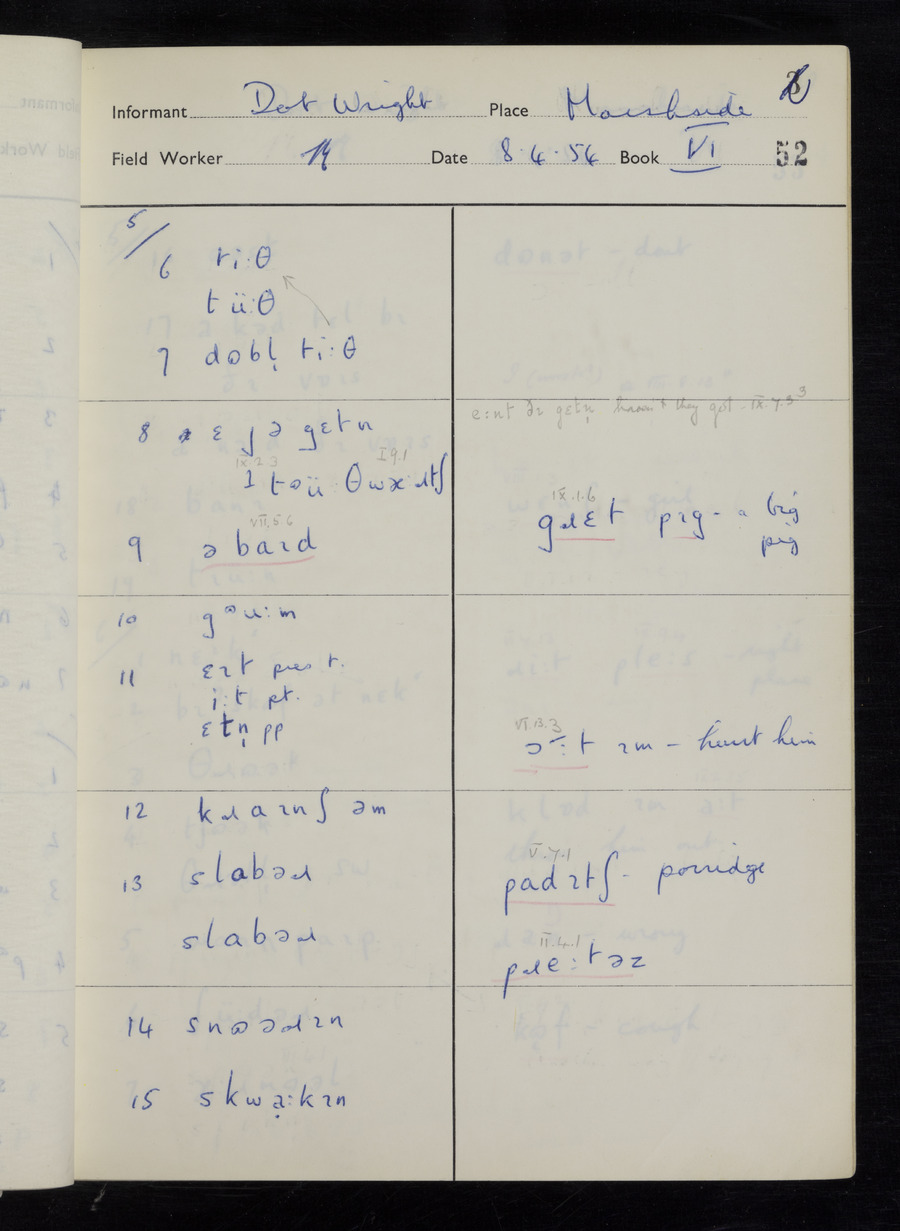 Informant Dot Wright Place Marshside
Field Worker Date 8.4.54 Book VI 52
5/
6 tiːθ
tüːθ
7 dɒbl̩ tiːθ
e:nt ðɪ gɛtn̩ haven't they got - IX.7.3³
8 ɛ ʃ ə gɛtn
IX.2.3 I.9.1
VII.5.6
9 ə baɪd
IX.1.6
gɹɛt pɪg - a big
pig
10 gəuːm
11 ɛɪt pres t.
iːt pt.
ɛtn̩ pp
VI.13.3
ɔ̄ːt ɪm - hurt him
12 kɹaɪnʃ əm
13 slabəɹ
V.7.1
padɪtʃ - porridge
slabəɹ
II.4.1
pɹeːtəz
14 snɒəɹɪn
15 skwạːkɪn